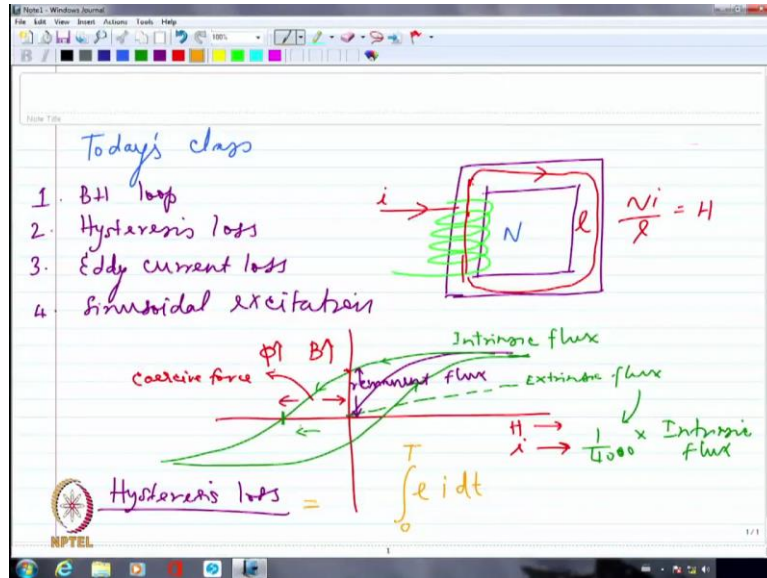 Note1 - Windows Journal
File Edit View Insert Actions Tools Help
100%
B I
Note Title
Today's class
1. BH loop
2. Hysteresis loss
3. Eddy current loss
4. Sinusoidal excitation
i
N
l
Ni/l = H
φ↑ B↑
Intrinsic flux
Coercive force
remnant flux
Extrinsic flux
H →
i → 1/4000 × Intrinsic flux
Hysteresis loss = ∫₀ᵀ e i dt
NPTEL
1/1
1